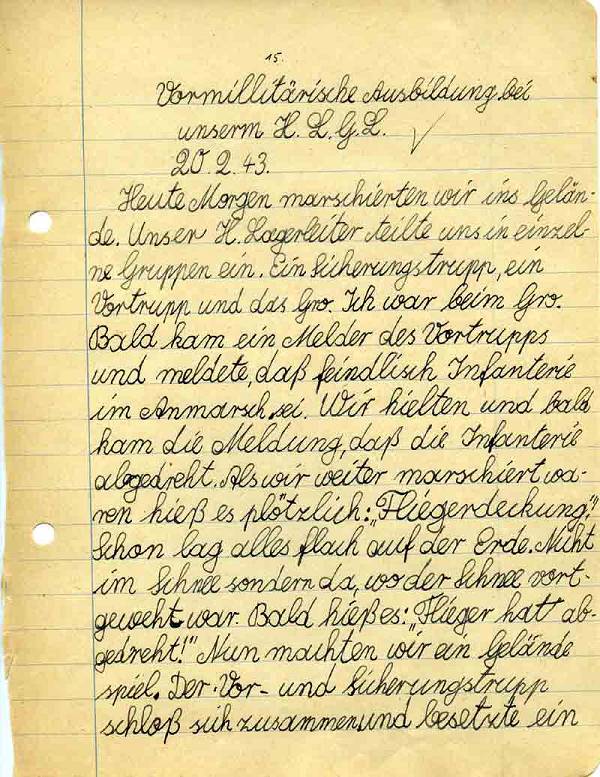 15.
Vormillitärische Ausbildung bei
unserm H. L. G. L.
20. 2. 43.
Heute Morgen marschierten wir ins Gelän-
de. Unser H. Lagerleiter teilte uns in einzel-
ne Gruppen ein. Ein Sicherungstrupp, ein
Vortrupp und das Gro. Ich war beim Gro.
Bald kam ein Melder des Vortrupps
und meldete, daß feindlisch Infanterie
im Anmarsch sei. Wir hielten und bald
kam die Meldung, daß die Infanterie
abgedreht. Als wir weiter marschiert wa-
ren hieß es plötzlich: „Fliegerdeckung!"
Schon lag alles flach auf der Erde. Nicht
im Schnee sondern da, wo der Schnee vort-
geweht war. Bald hieß es: „Flieger hat ab-
gedreht!" Nun machten wir ein Gelände
spiel. Der Vor- und Sicherungstrupp
schloß sich zusammen und besetzte ein